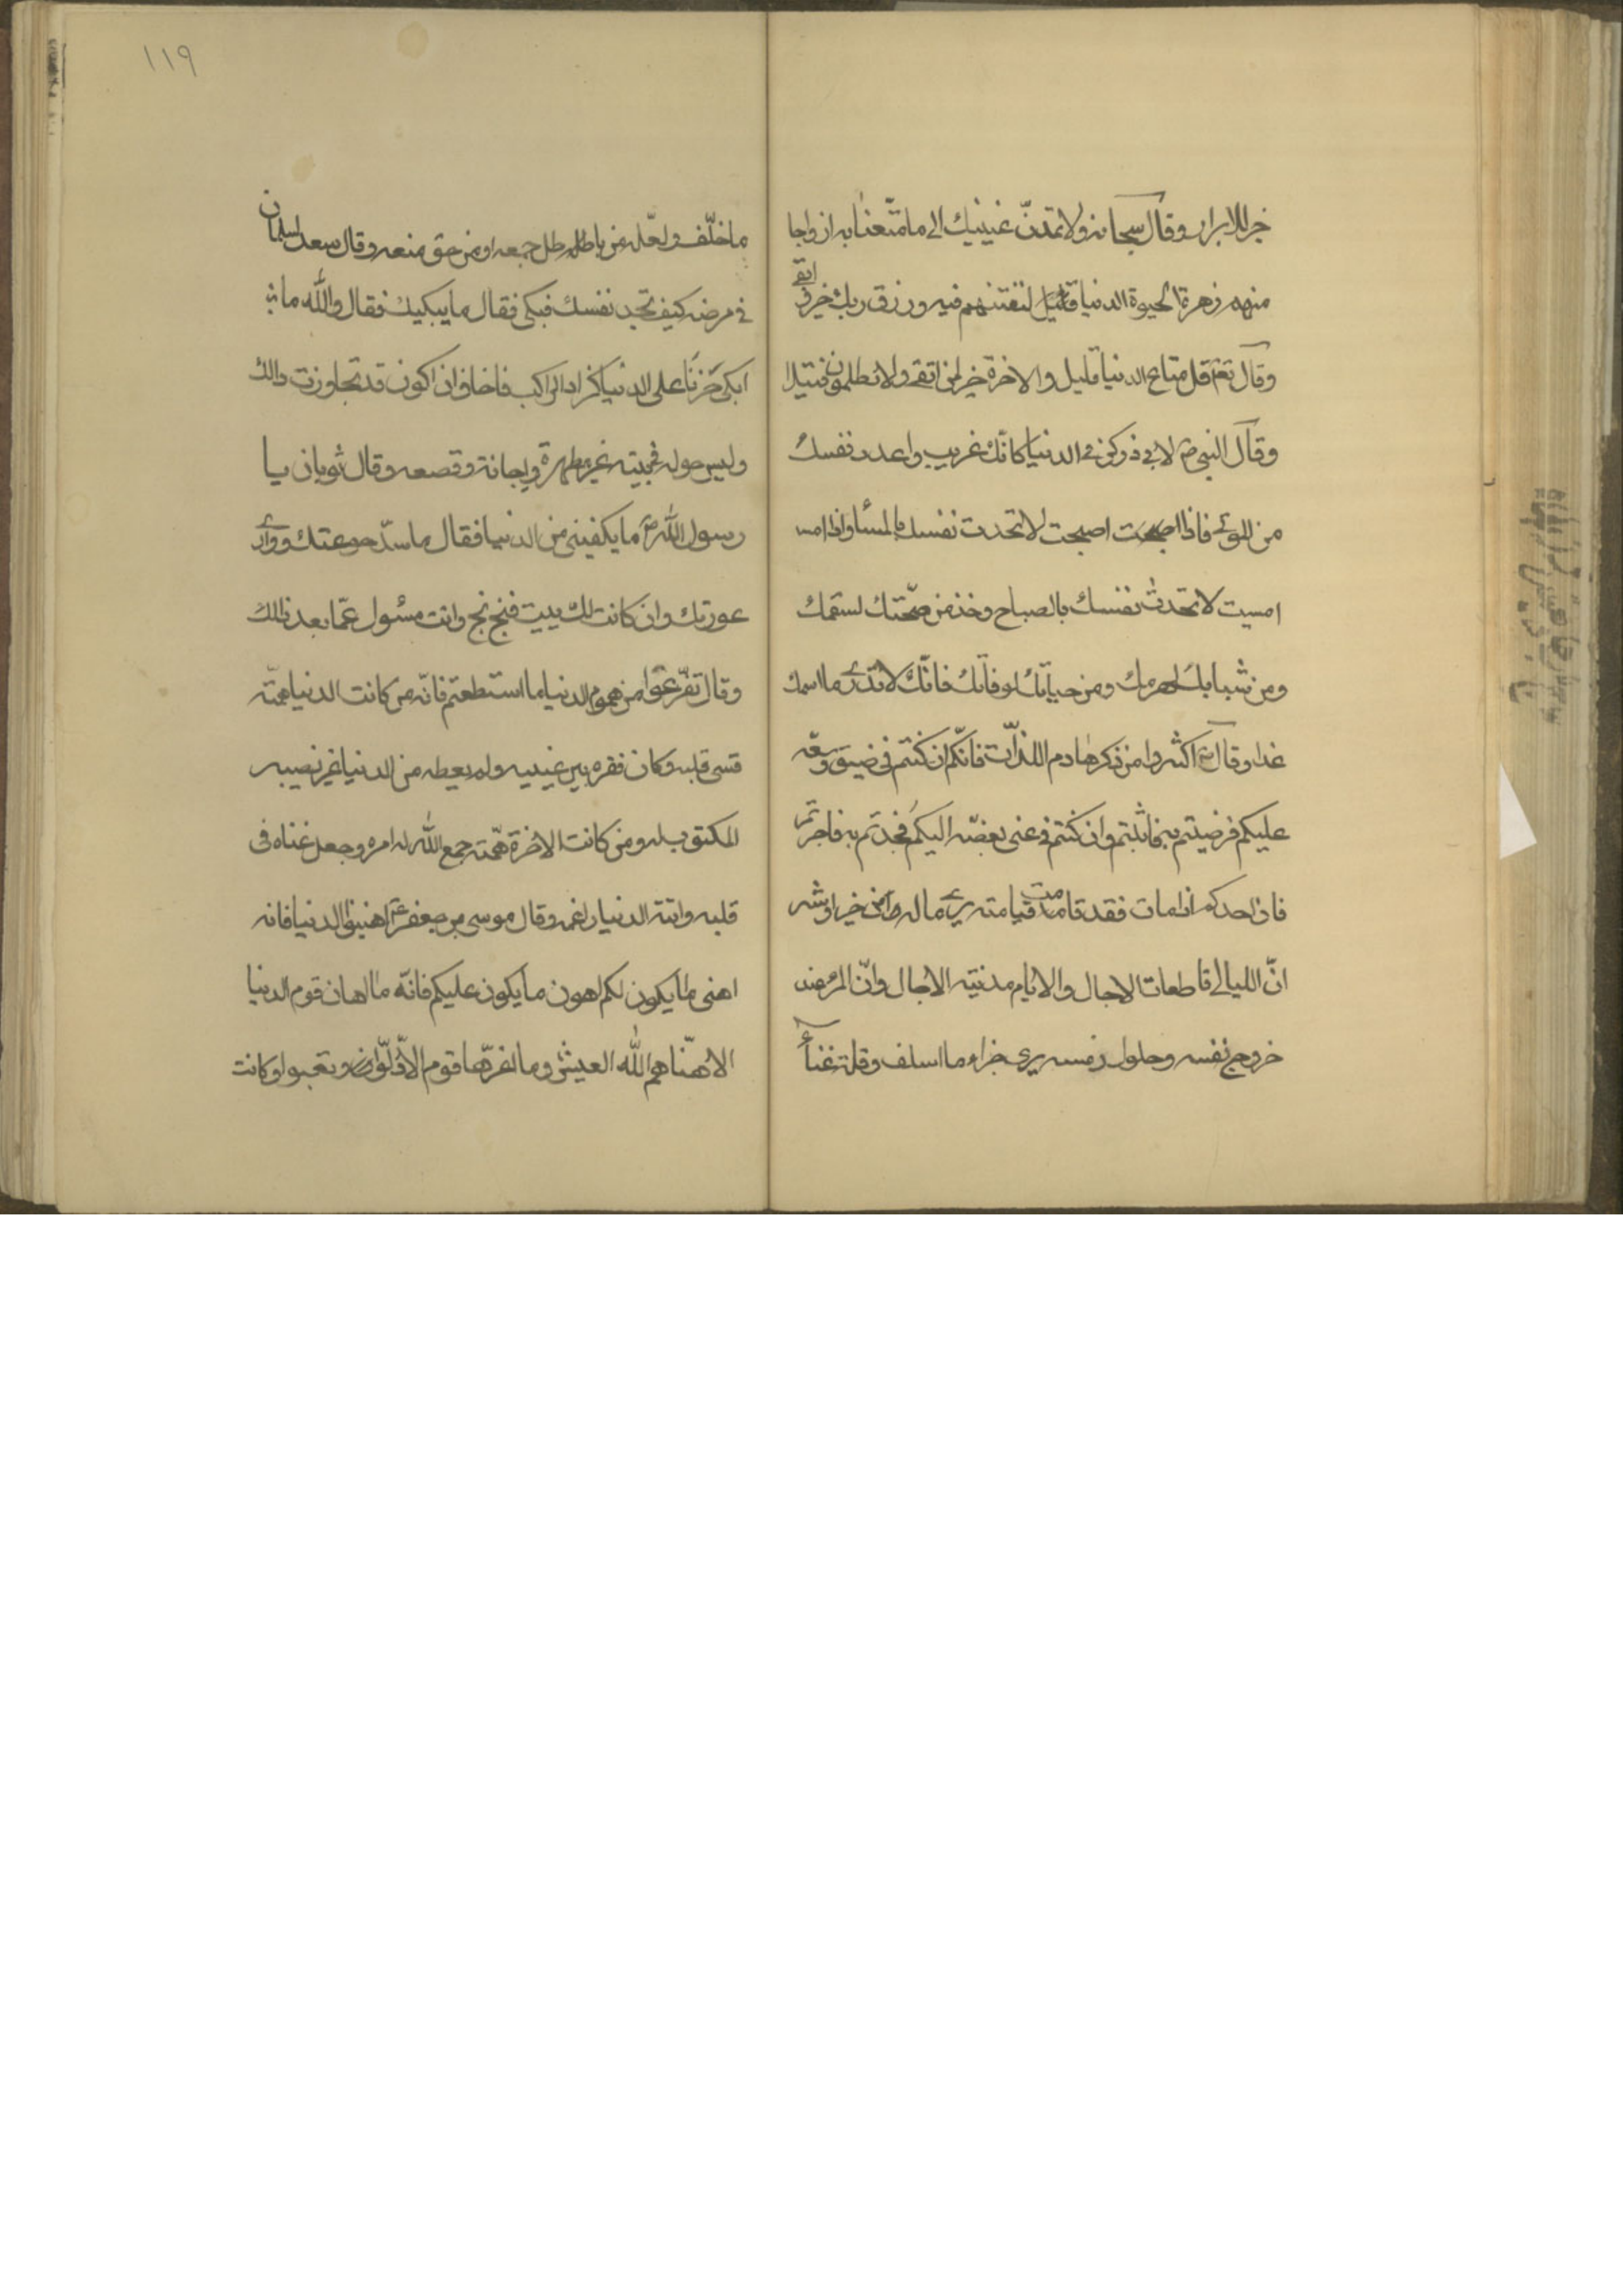 خير للابرار وقال سبحانه ولا تمدنّ عينيك الى ما متّعنا به ازواجا
منهم زهرة الحيوة الدنيا لنفتنهم فيه ورزق ربك خير و ابقى
وقال تعم قل متاع الدنيا قليل والاخرة خير لمن اتقى ولا تظلمون فتيلا
وقال النبي ص لابي ذر كن في الدنيا كانّك غريب واعدد نفسك
من الموتى فاذا اصبحت لا تحدث نفسك بالمسا واذا امس
امسيت لا تحدث نفسك بالصباح وخذ من صحّتك لسقمك
ومن شبابك لهرمك ومن حياتك لوفاتك فانّك لا تدرى ما اسمك
غدا وقال اكثروا من ذكر هادم اللذّات فانّكم ان كنتم فى ضيق وسّعه
عليكم فرضيتم به فاثبتم وان كنتم فى غنى بغضّه اليكم فجدتم به فاجرتم
فان احدكم اذا مات فقد قامت قيامته يرى ماله من خير اوشر
انّ الليالى قاطعات الاجال والايام مدنيه الاجال وانّ المرء عند
خروج نفسه وحلول رمسه يرى جزاء ما اسلف وقلة غناء
١١٩
ما خلّف ولعلّه من باطل جمعه او من حق منعه وقال سعد لسلمان
فى مرضه كيف تجد نفسك فبكى فقال ما يبكيك فقال والله ما
ابكى حزنا على الدنيا فاخاف ان اكون قد تجاوزت ذالك
وليس حوله فى بيته غير مطهرة واجانة وقصعه وقال ثوبان يا
رسول الله ص ما يكفينى من الدنيا فقال ما سدّ جوعتك ووارى
عورتك وان كانت لك بيت فبخ بخ وانت مسئول عمّا بعد ذالك
وقال تفرّغوا من هموم الدنيا ما استطعتم فانّه من كانت الدنيا همّته
قسى قلبه وكان فقره بين عينيه ولم يعطه من الدنيا غير نصيبه
المكتوب له ومن كانت الاخرة همّته جمع الله له امره وجعل غناه فى
قلبه واتته الدنيا راغمه وقال موسى بن جعفر ع اهينوا الدنيا فانه
اهنى ما يكون لكم اهون ما يكون عليكم فانّه ما اهان قوم الدنيا
الا هنّاهم الله العيش وما اعزّها قوم الا ذلّوا وتعبوا وكانت